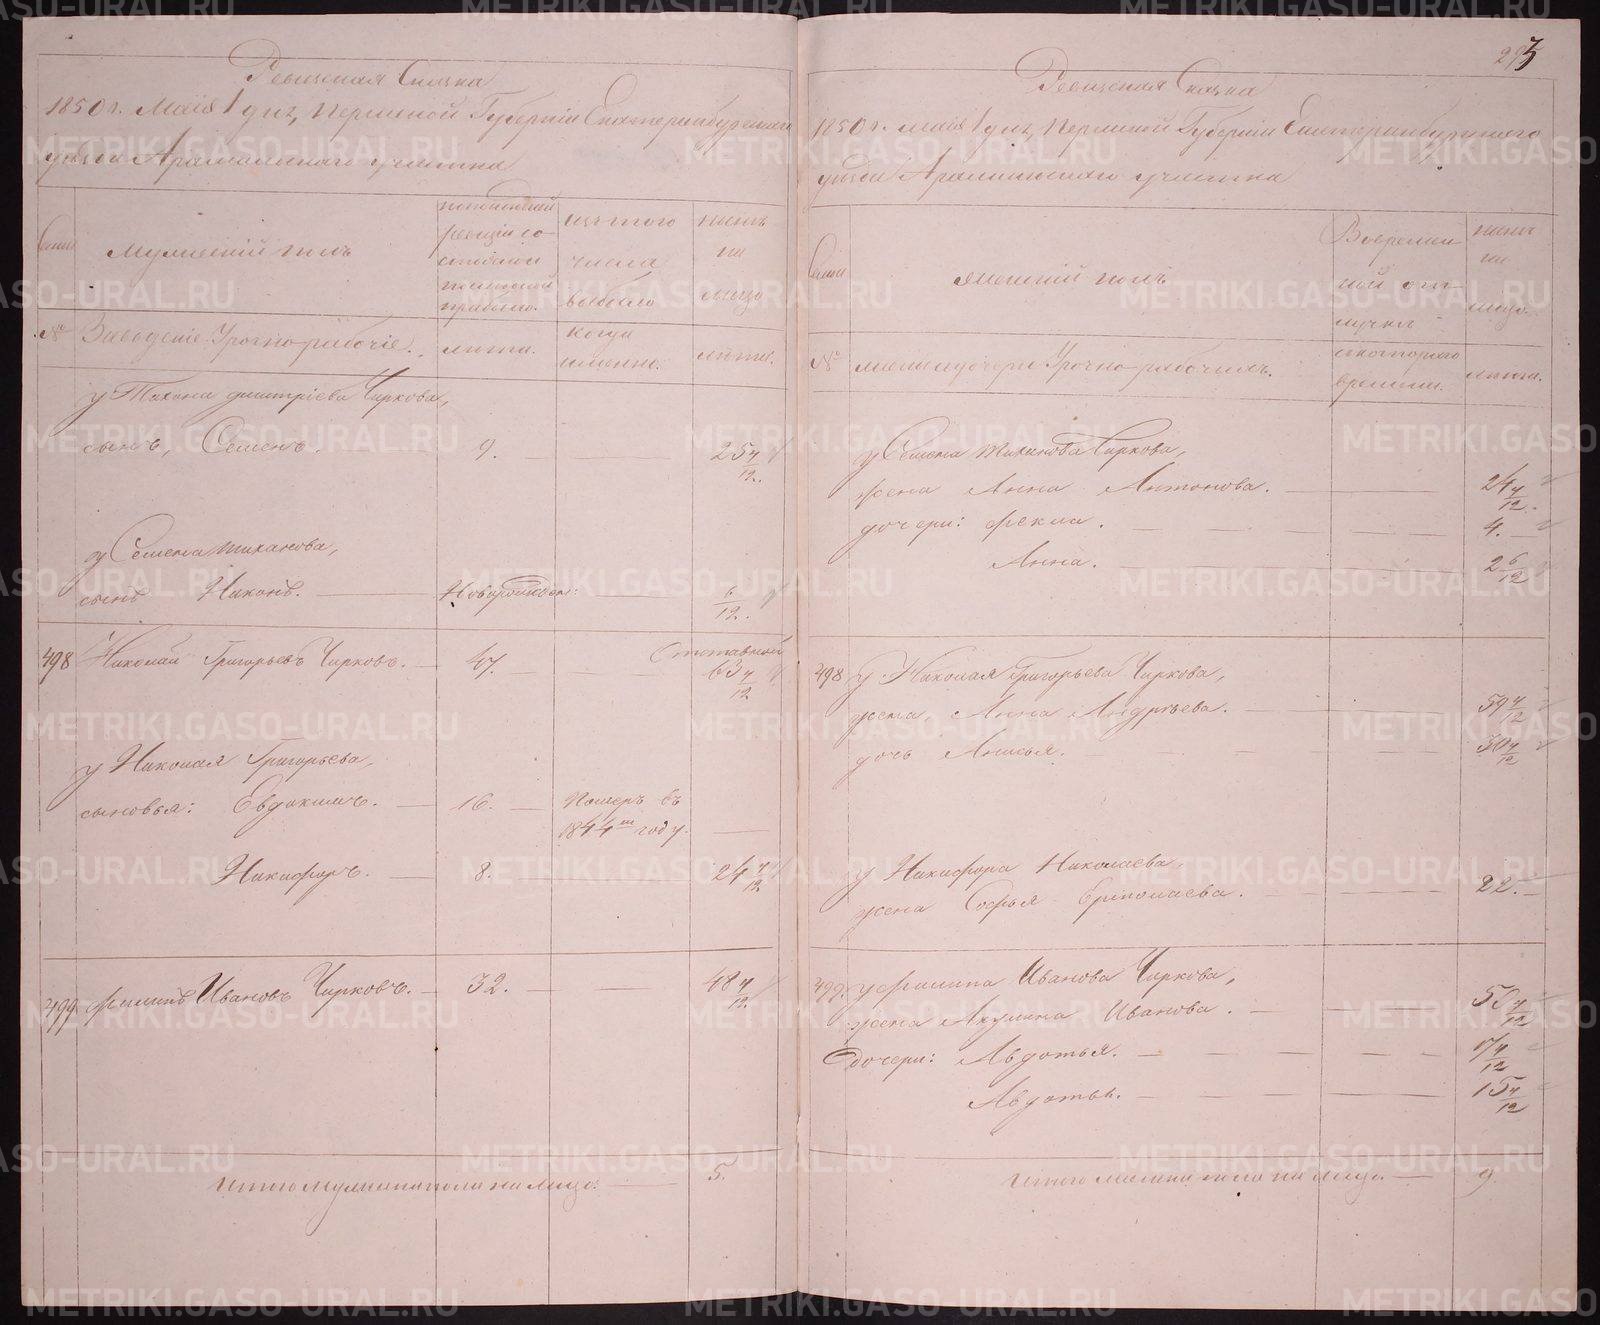 Ревизская Сказка
1850 г. Маія 1 дня, Пермской Губерніи Екатеринбургскаго
уезда Арамильскаго участка
Семьи
Мужескій полъ
по последней
ревизіи со
стояло и
после оной
прибыло.
изъ того
числа
выбыло
ныне
на
лицо
№
Заводскіе Урочнорабочіе.
лета.
когда
именно.
лета.
у Тихона Дмитріева Чиркова,
сынъ, Семенъ. 9. 25 4/12.
у Семена Тиханова,
сынъ Никонъ. Новорожден: 6/12.
498 Николай Григорьевъ Чирковъ. 47. Отставной
63 4/12
у Николая Григорьева,
сыновья: Евдокимъ. 16. Померъ въ
1844 м году.
Никифоръ. 8. 24 4/12
499 Филипъ Ивановъ Чирковъ. 32. 48 4/12
Итого мужска пола на лицо. 5.
293
Ревизская Сказка
1850 г. Маія 1 дня, Пермской Губерніи Екатеринбургскаго
уезда Арамильскаго участка
Семьи
Женскій полъ
Во времен
ной от-
лучке
ныне
на
лицо.
№
жены и дочери Урочно-рабочихъ.
с котораго
времени.
лета.
у Семена Тиханова Чиркова,
жена Анна Антонова. 24 4/12.
дочери: Фекла. 4.
Анна. 2 6/12
498 у Николая Григорьева Чиркова,
жена, Анна Андреева. 59 4/12
дочь Анисья. 30 4/12
у Никифора Николаева,
жена Софья Ермолаева. 22.
499. у Филипа Иванова Чиркова,
жена Акулина Иванова. 50 4/12
дочери: Авдотья. 17 4/12
Авдотья. 15 4/12
Итого женска пола на лицо. 9.
METRIKI.GASO-URAL.RU